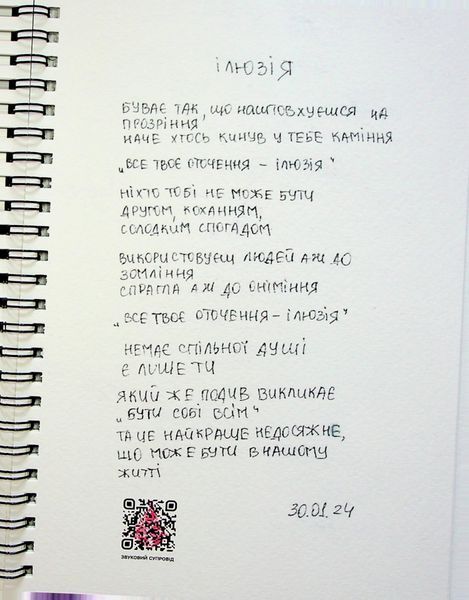 ІЛЮЗІЯ
БУВАЄ ТАК, ЩО НАШТОВХУЄШСЯ НА
ПРОЗРІННЯ,
НАЧЕ ХТОСЬ КИНУВ У ТЕБЕ КАМІННЯ
„ВСЕ ТВОЄ ОТОЧЕННЯ – ІЛЮЗІЯ"
НІХТО ТОБІ НЕ МОЖЕ БУТИ
ДРУГОМ, КОХАННЯМ,
СОЛОДКИМ СПОГАДОМ
ВИКОРИСТОВУЄШ ЛЮДЕЙ АЖ ДО
ЗОМЛІННЯ
СПРАГЛА АЖ ДО ОНІМІННЯ
„ВСЕ ТВОЄ ОТОЧЕННЯ – ІЛЮЗІЯ"
НЕМАЄ СПІЛЬНОЇ ДУШІ
Є ЛИШЕ ТИ
ЯКИЙ ЖЕ ПОДИВ ВИКЛИКАЄ
„БУТИ СОБІ ВСІМ"
ТА ЦЕ НАЙКРАЩЕ НЕДОСЯЖНЕ,
ЩО МОЖЕ БУТИ В НАШОМУ
ЖИТТІ
30.01.24
ЗВУКОВИЙ СУПРОВІД